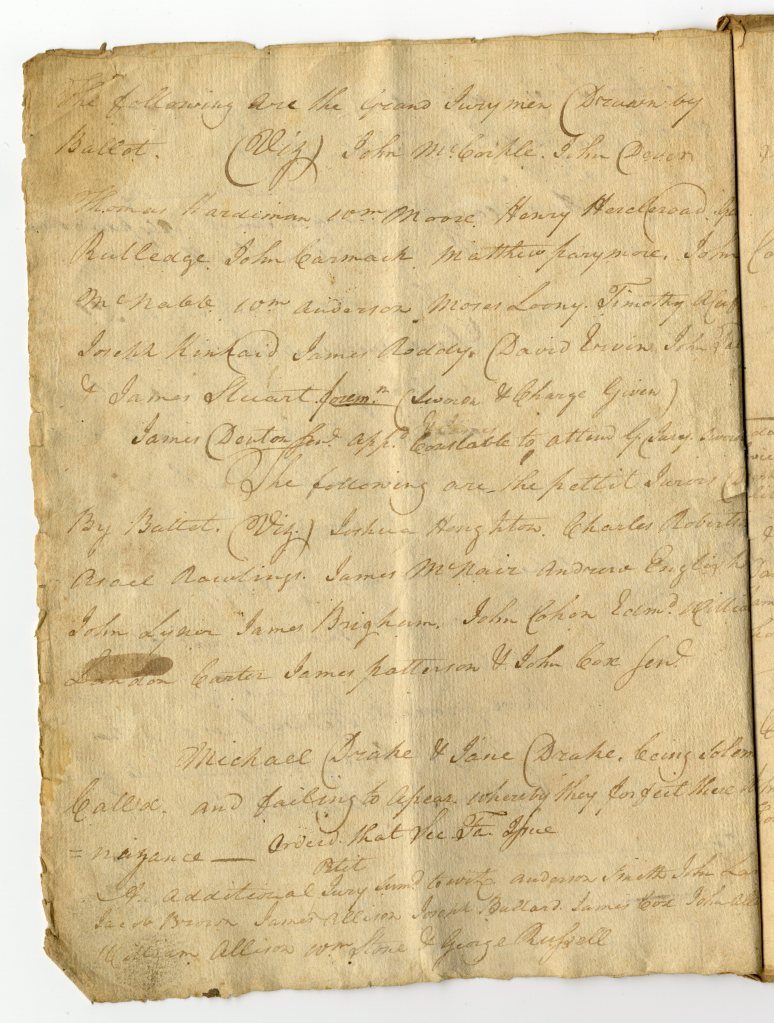 The following are the Grand Jurymen Drawn by
Ballot. (Viz) John McCorkle. John Dever
Thomas Hardiman Wm Moore. Henry Hercleroad.
Rutledge. John Carmack. Matthew parymore. John
McNabb. Wm Anderson. Moses Loony. Timothy
Joseph Kinkaid James Roddy. David Ervin. John
& James Stuart forem.n (Sworn & Charge Given)
James Denton Senr. app.d Constable to attend G Jury. Sworn
The following are the pettit Jurors
By Ballot. (Viz.) Joshua Houghton. Charles Roberts
Asael Rawlings. James McNair Andrew English
John Lyner James Brigham. John Cohon Edmd. Willia
Landon Carter James patterson & John Cox Senr.
Michael Drake & Jane Drake. being Solem
Calld. and failing to Apear. whereby they forfeit there
=nizance — Ord.d that Sci. Fa. Issue
Petit
Additional Jury Sumd. towit Anderson Smith John La
Jacob Brown James Allison Joseph Bullard. James Cox John All
William Allison Wm Stone & George Russell